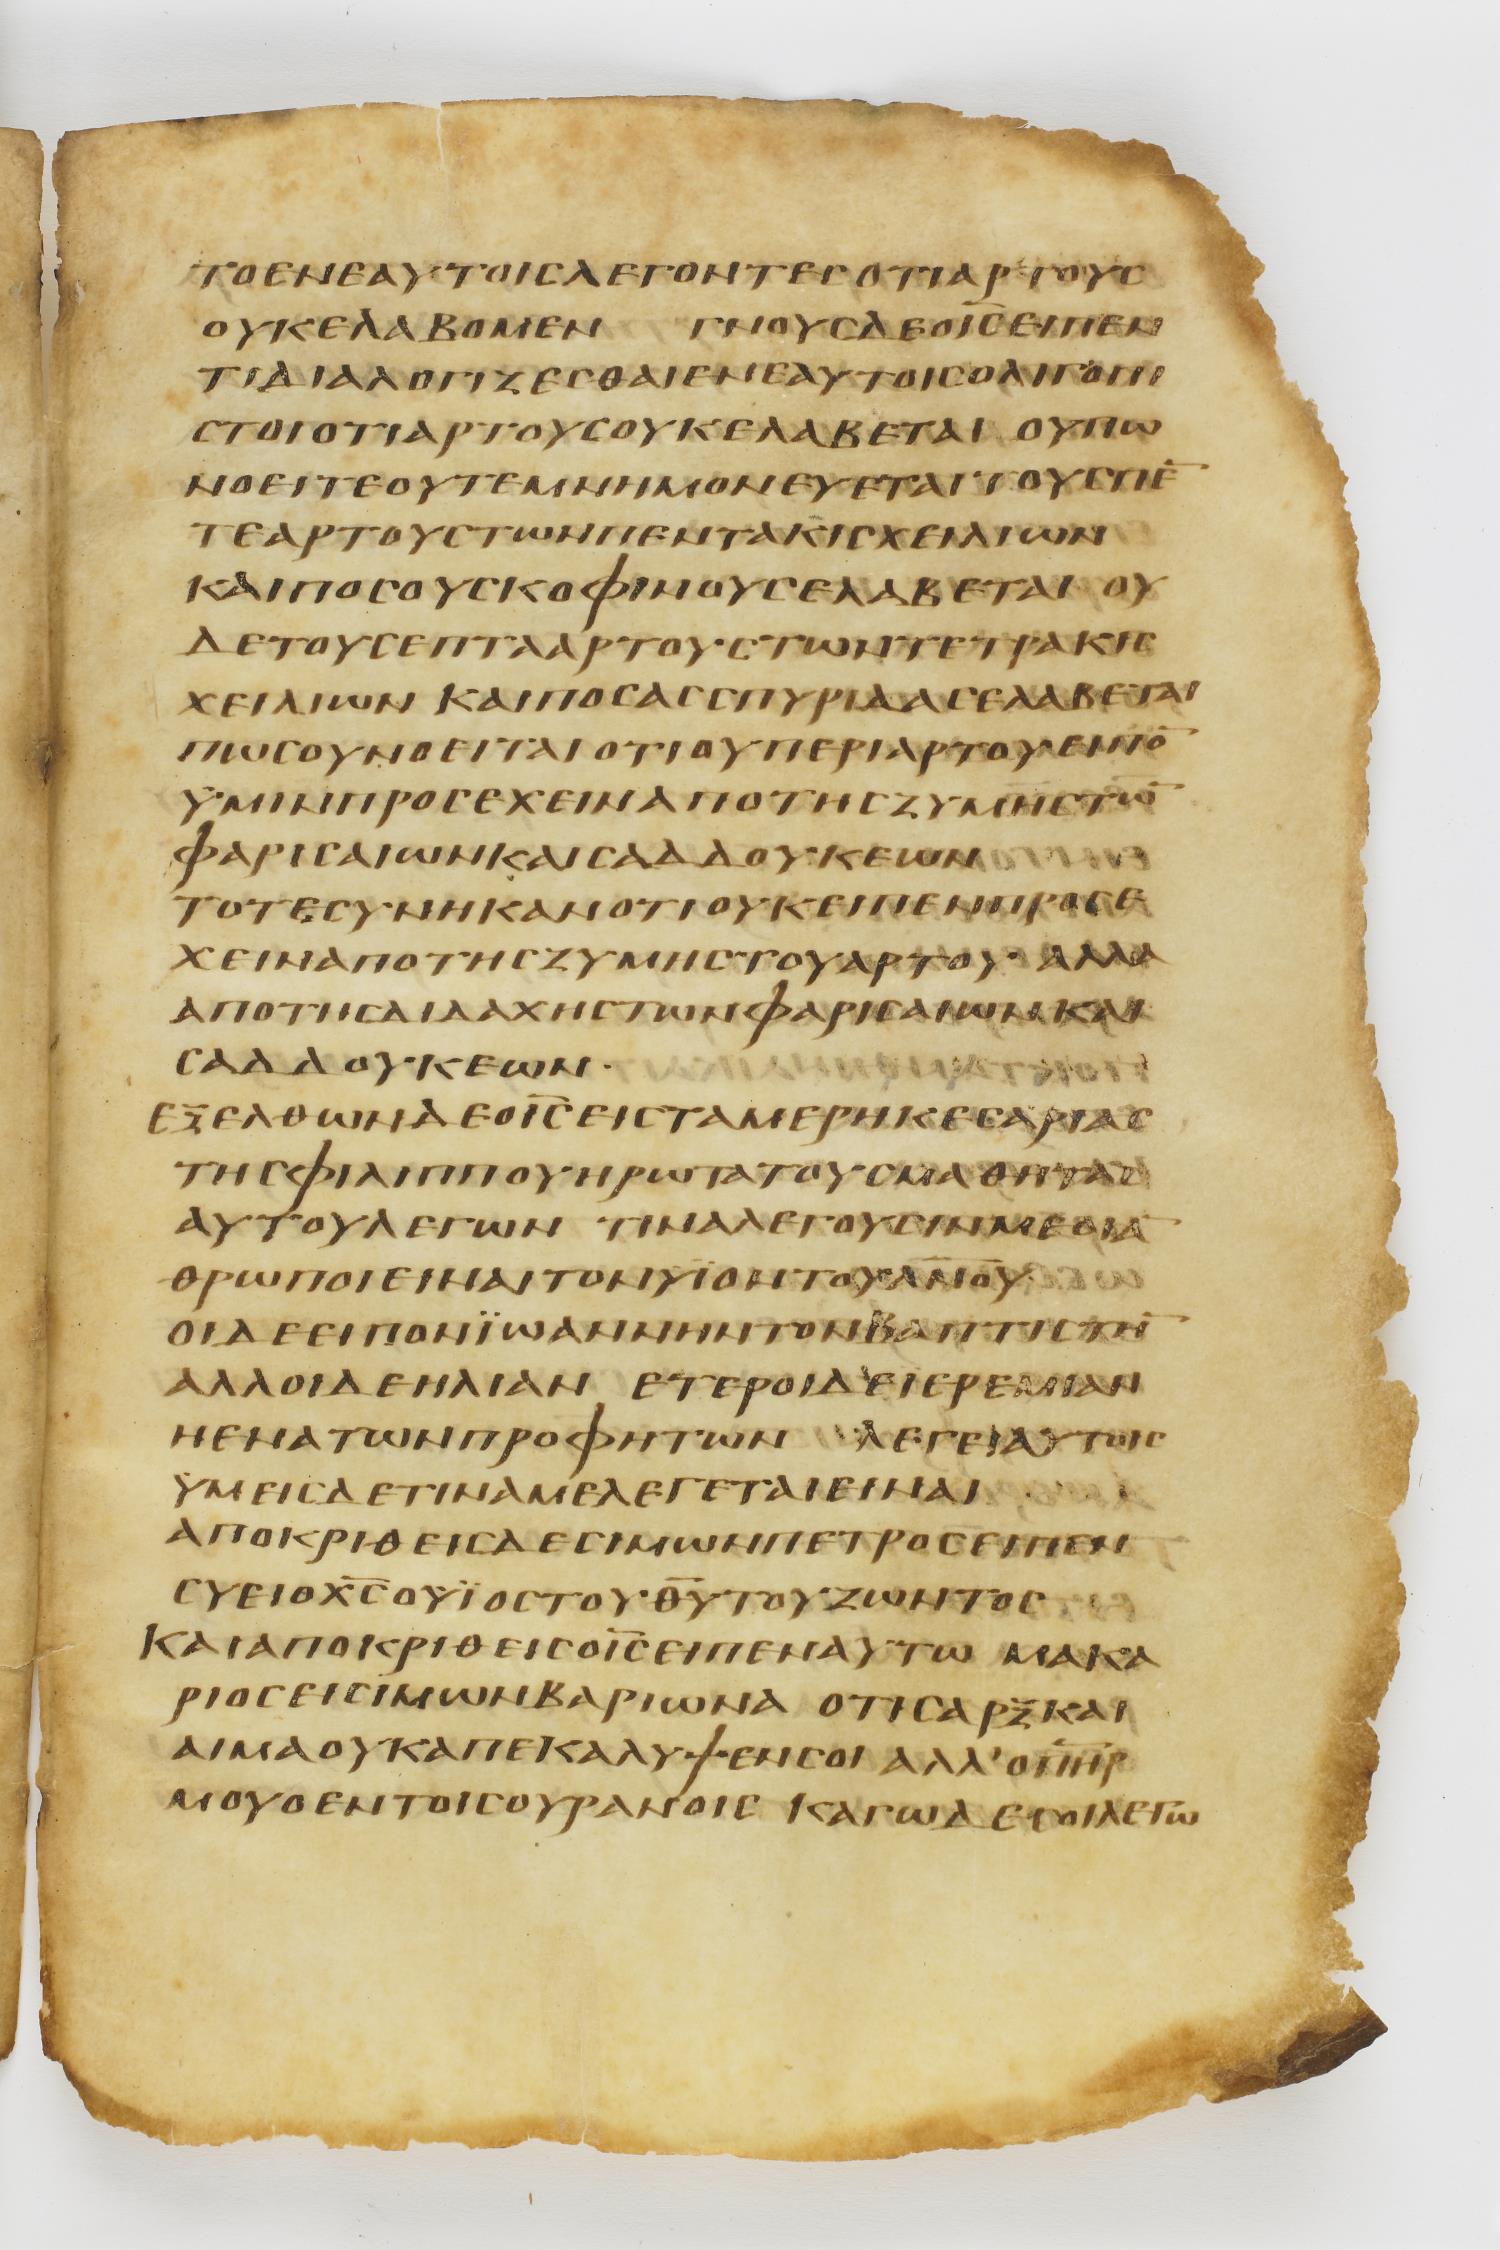 ΤΟΕΝΕΑΥΤΟΙCΛΕΓΟΝΤΕCΟΤΙΑΡΤΟΥC
ΟΥΚΕΛΑΒΟΜΕΝ ΓΝΟΥCΔΕΟΙ̅C̅ΕΙΠΕΝ
ΤΙΔΙΑΛΟΓΙΖΕCΘΑΙΕΝΕΑΥΤΟΙCΟΛΙΓΟΠΙ
CΤΟΙΟΤΙΑΡΤΟΥCΟΥΚΕΛΑΒΕΤΑΙ ΟΥΠΩ
ΝΟΕΙΤΕΟΥΤΕΜΝΗΜΟΝΕΥΕΤΑΙΤΟΥCΠΕ̅
ΤΕΑΡΤΟΥCΤΩΝΠΕΝΤΑΚΙCΧΕΙΛΙΩΝ
ΚΑΙΠΟCΟΥCΚΟΦΙΝΟΥCΕΛΑΒΕΤΑΙ ΟΥ
ΔΕΤΟΥCΕΠΤΑΑΡΤΟΥCΤΩΝΤΕΤΡΑΚΙC
ΧΕΙΛΙΩΝ ΚΑΙΠΟCΑCCΠΥΡΙΔΑCΕΛΑΒΕΤΑΙ
ΠΩCΟΥΝΟΕΙΤΑΙΟΤΙΟΥΠΕΡΙΑΡΤΟΥΕΙΠΟ̅
ΥΜΙΝΠΡΟCΕΧΕΙΝΑΠΟΤΗCΖΥΜΗCΤΩ̅
ΦΑΡΙCΑΙΩΝΚΑΙCΑΔΔΟΥΚΕΩΝ
ΤΟΤΕCΥΝΗΚΑΝΟΤΙΟΥΚΕΙΠΕΝΠΡΟCΕ
ΧΕΙΝΑΠΟΤΗCΖΥΜΗCΤΟΥΑΡΤΟΥ ΑΛΛΑ
ΑΠΟΤΗCΔΙΔΑΧΗCΤΩΝΦΑΡΙCΑΙΩΝΚΑΙ
CΑΔΔΟΥΚΕΩΝ·
ΕΞΕΛΘΩΝΔΕΟΙ̅C̅ΕΙCΤΑΜΕΡΗΚΕCΑΡΙΑC
ΤΗCΦΙΛΙΠΠΟΥΗΡΩΤΑΤΟΥCΜΑΘΗΤΑC
ΑΥΤΟΥΛΕΓΩΝ ΤΙΝΑΛΕΓΟΥCΙΝΜΕΟΙΑ̅
ΘΡΩΠΟΙΕΙΝΑΙΤΟΝΥΪΟΝΤΟΥΑ̅Ν̅Ο̅Υ̅
ΟΙΔΕΕΙΠΟΝΪΩΑΝΝΗΝΤΟΝΒΑΠΤΙCΤΗ̅
ΑΛΛΟΙΔΕΗΛΙΑΝ ΕΤΕΡΟΙΔΕΙΕΡΕΜΙΑΝ
ΗΕΝΑΤΩΝΠΡΟΦΗΤΩΝ ΛΕΓΕΙΑΥΤΟΙC
ΥΜΕΙCΔΕΤΙΝΑΜΕΛΕΓΕΤΑΙΕΙΝΑΙ
ΑΠΟΚΡΙΘΕΙCΔΕCΙΜΩΝΠΕΤΡΟCΕΙΠΕΝ
CΥΕΙΟΧ̅C̅ΟΥΪΟCΤΟΥΘ̅Υ̅ΤΟΥΖΩΝΤΟC
ΚΑΙΑΠΟΚΡΙΘΕΙCΟΙ̅C̅ΕΙΠΕΝΑΥΤΩ ΜΑΚΑ
ΡΙΟCΕΙCΙΜΩΝΒΑΡΙΩΝΑ ΟΤΙCΑΡΞΚΑΙ
ΑΙΜΑΟΥΚΑΠΕΚΑΛΥΨΕΝCΟΙ ΑΛΛ'ΟΠ̅Η̅Ρ̅
ΜΟΥΟΕΝΤΟΙCΟΥΡΑΝΟΙC ΚΑΓΩΔΕCΟΙΛΕΓΩ